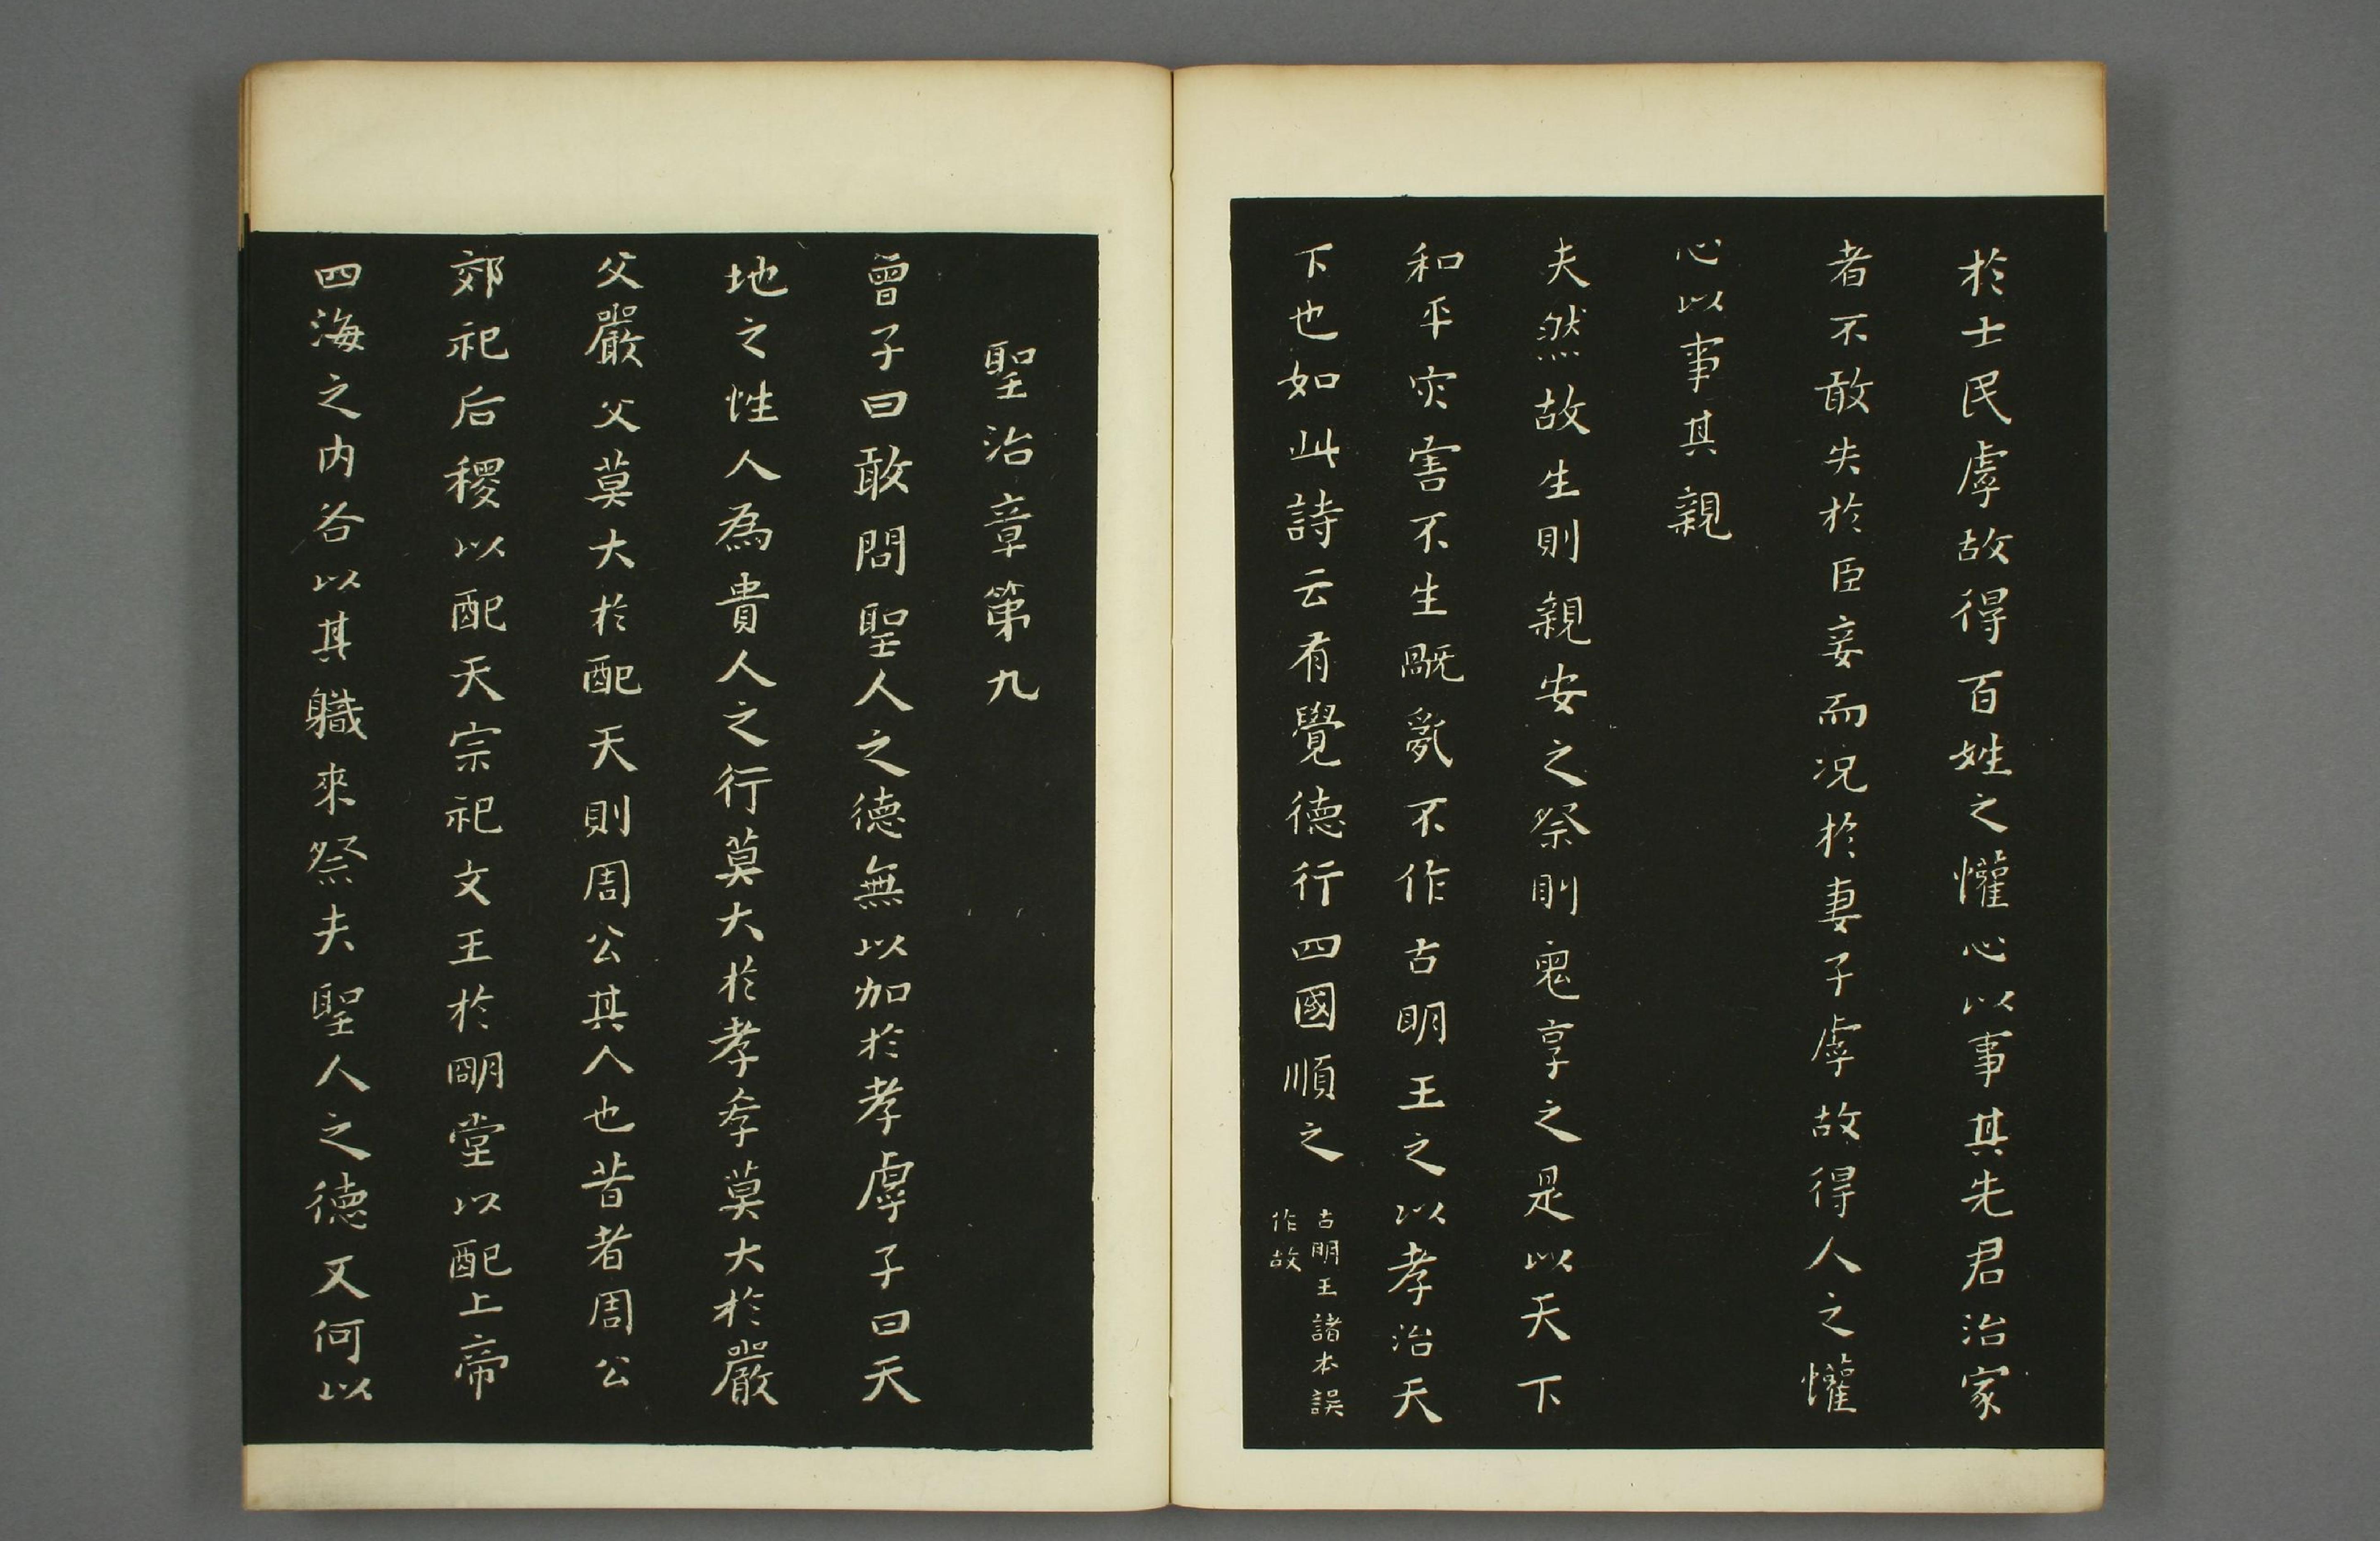 於士民虖故得百姓之懽心以事其先君治家
者不敢失於臣妾而况於妻子虖故得人之懽
心以事其親
夫然故生則親安之祭則鬼享之是以天下
和平灾害不生𥚽亂不作古明王之以孝治天
下也如此詩云有覺德行四國順之
古明王諸本誤
作故
聖治章第九
曾子曰敢問聖人之德無以加於孝虖子曰天
地之性人為貴人之行莫大於孝孝莫大於嚴
父嚴父莫大於配天則周公其人也昔者周公
郊祀后稷以配天宗祀文王於朙堂以配上帝
四海之内各以其職來祭夫聖人之德又何以